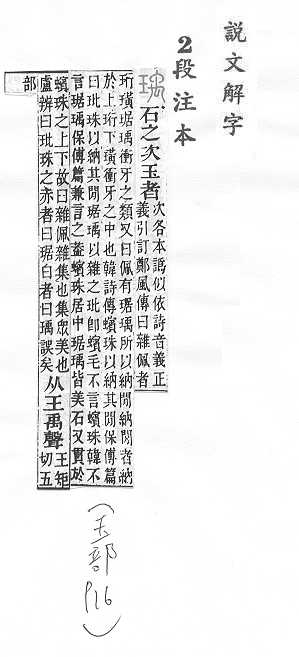 說文解字
2段注本
瑀 石之次玉者 次各本譌似依詩音義正
義引訂鄭風傳曰雜佩者
珩璜琚瑀衝牙之類又曰佩有琚瑀所以納閒納閒者納
於上珩下璜衝牙之中也韓詩傳蠙珠以納其閒保傅篇
曰玭珠以納其閒琚瑀以雜之玭卽蠙毛不言蠙珠韓不
言琚瑀保傅篇兼言之葢蠙珠居中琚瑀皆美石又貫於
蠙珠之上下故曰雜佩雜集也集衆美也
盧辨曰玭珠之赤者曰琚白者曰瑀誤矣
从王禹聲 王矩
切五
部
(玉部 P16)